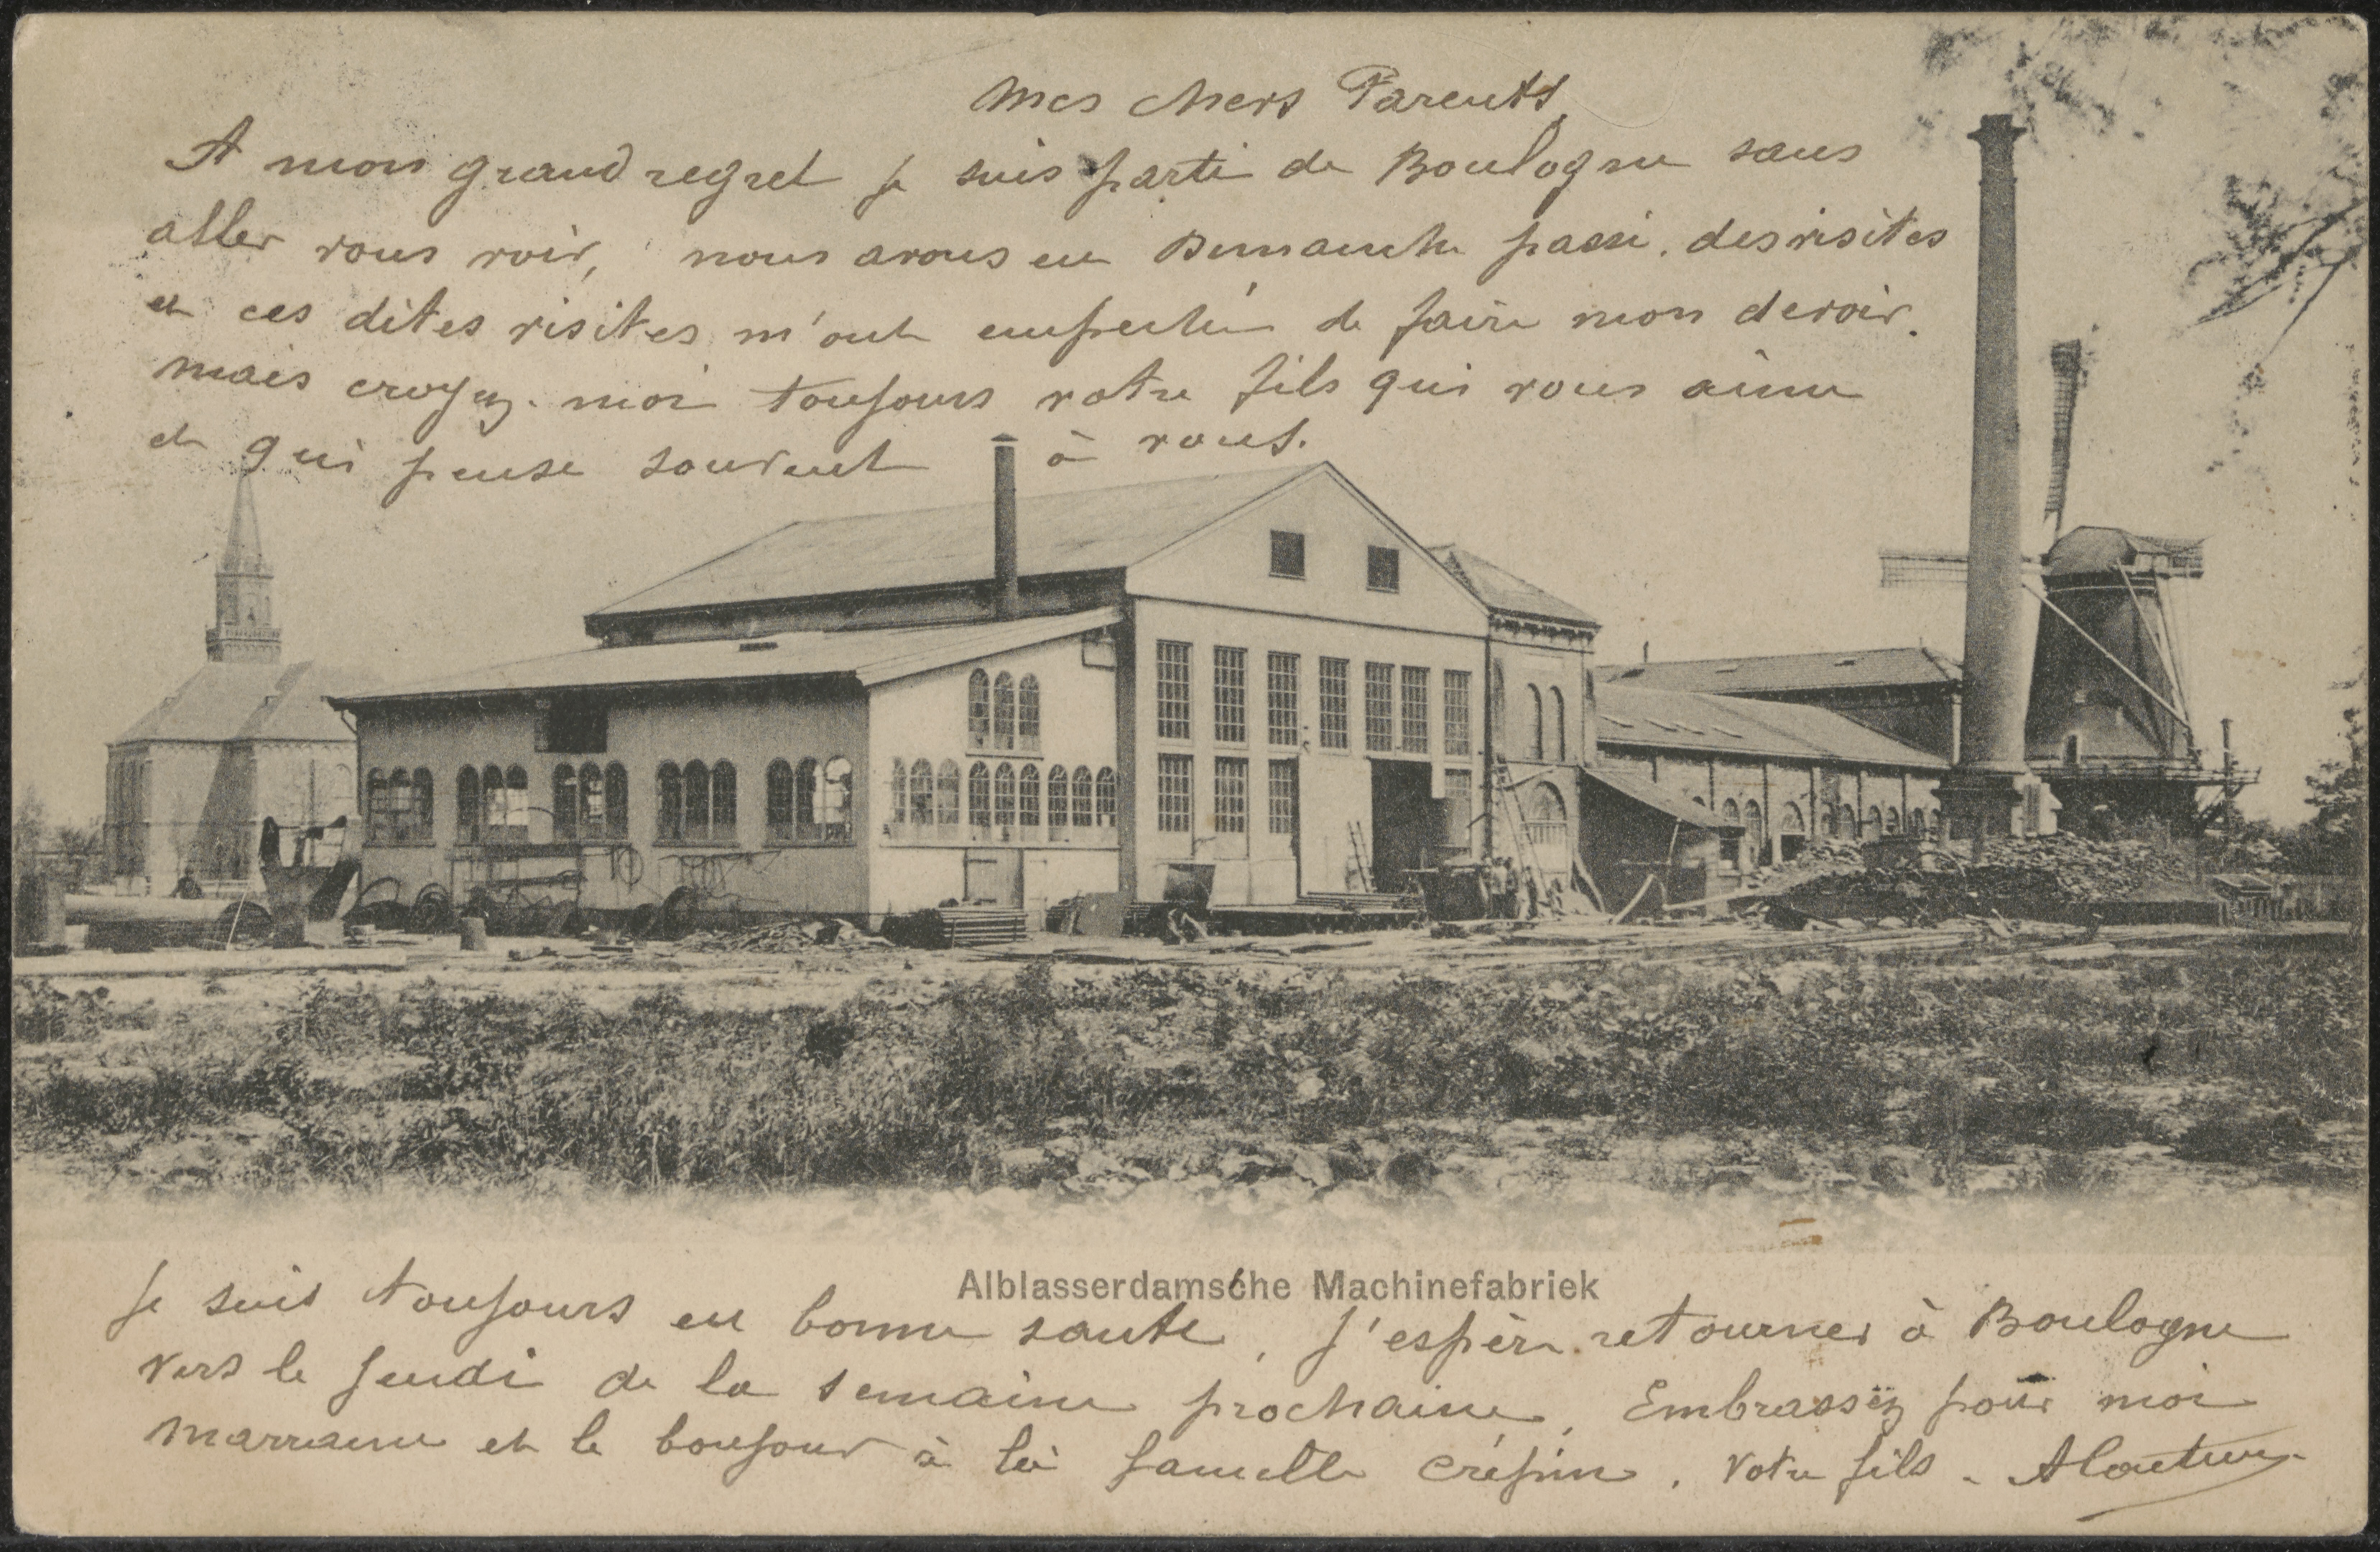 Mes chers Parents
A mon grand regret je suis parti de Boulogne sans
aller vous voir, nous avons eu Dimanche passé, des visites
et ces dites visites m'ont empeché de faire mon devoir.
mais croyez-moi toujours votre fils qui vous aime
et qui pense souvent à vous.
Alblasserdamsche Machinefabriek
je suis toujours en bonne santé, j'espère retourner à Boulogne
vers le jeudi de la semaine prochaine, Embrassez pour moi
marraine et le bonjour à la famille Crépin. Votre fils -